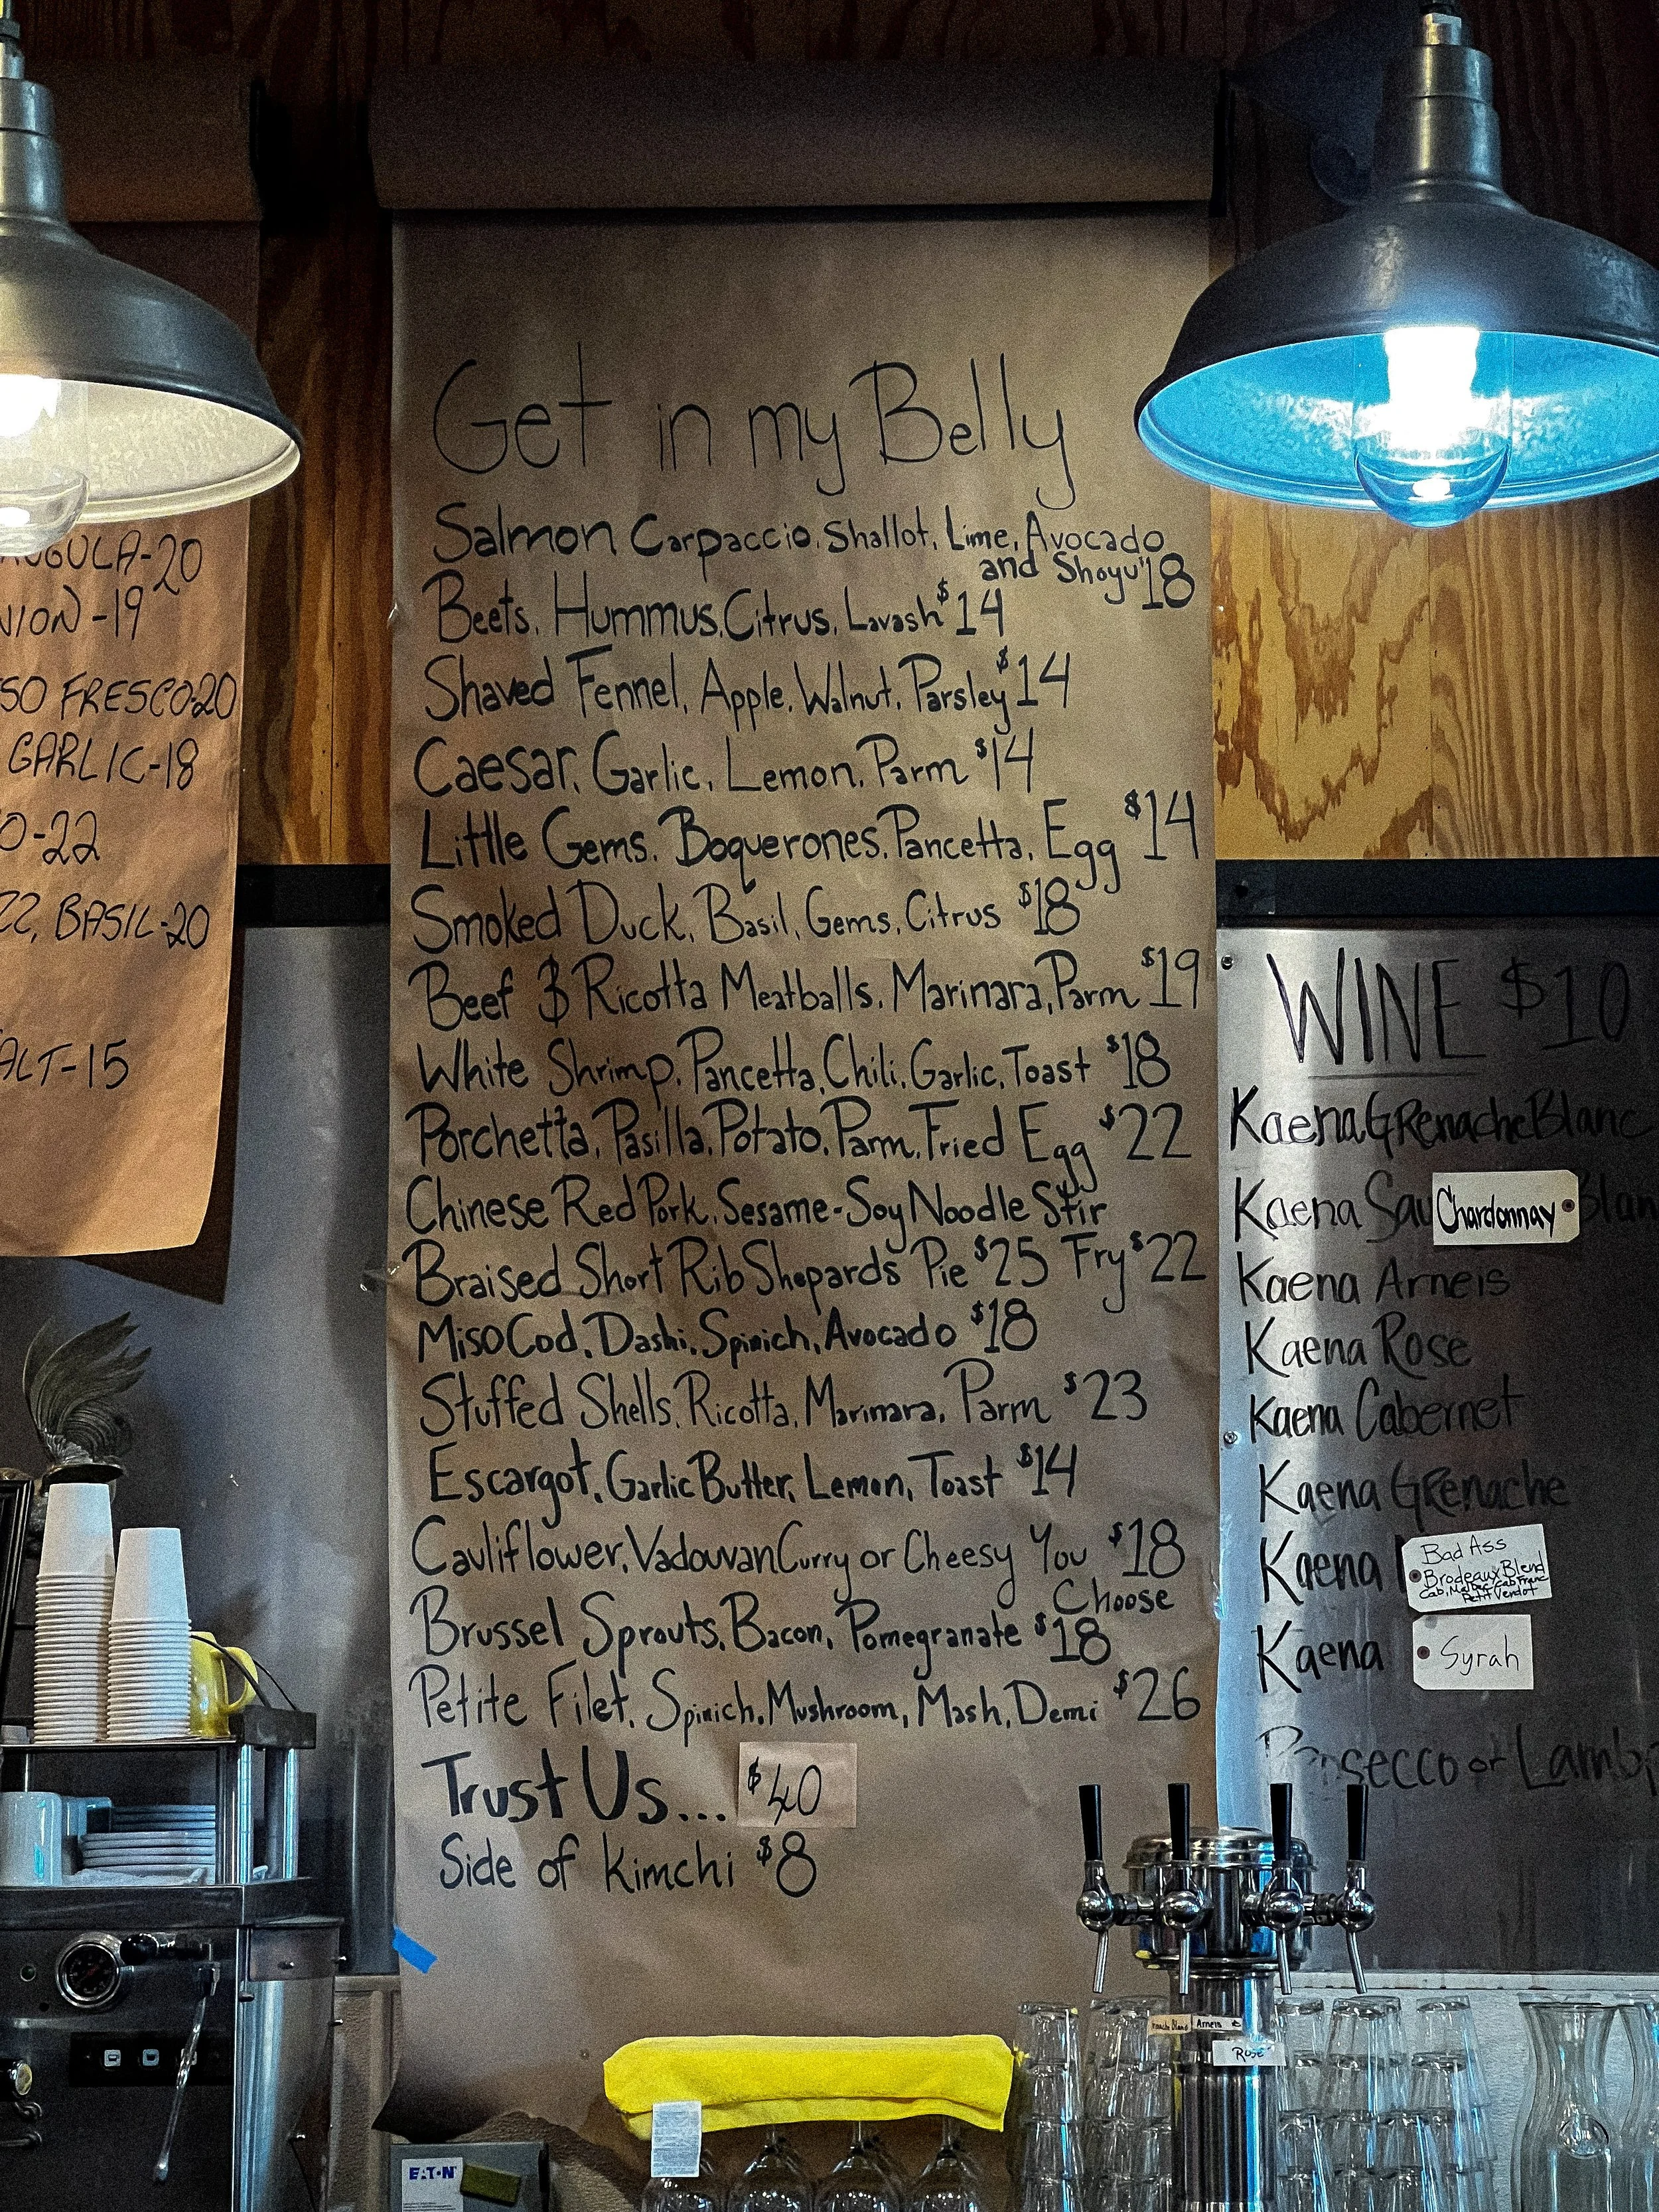 -20
-19
SO FRESCO-20
GARLIC-18
O-22
ZZ, BASIL-20
ALT-15
Get in my Belly
Salmon Carpaccio, Shallot, Lime, Avocado
and Shoyu $18
Beets, Hummus, Citrus, Lavash $14
Shaved Fennel, Apple, Walnut, Parsley $14
Caesar, Garlic, Lemon, Parm $14
Little Gems, Boquerones, Pancetta, Egg $14
Smoked Duck, Basil, Gems, Citrus $18
Beef & Ricotta Meatballs, Marinara, Parm $19
White Shrimp, Pancetta, Chili, Garlic, Toast $18
Porchetta, Pasilla, Potato, Parm, Fried Egg $22
Chinese Red Pork, Sesame-Soy Noodle Stir
Fry $22
Braised Short Rib Shepards Pie $25
Miso Cod, Dashi, Spinich, Avocado $18
Stuffed Shells, Ricotta, Marinara, Parm $23
Escargot, Garlic Butter, Lemon, Toast $14
Cauliflower, Vadouvan Curry or Cheesy You $18
Choose
Brussel Sprouts, Bacon, Pomegranate $18
Petite Filet, Spinich, Mushroom, Mash, Demi $26
Trust Us... $40
Side of Kimchi $8
WINE $10
Kaena GRenache Blanc
Kaena Sau Chardonnay Blan
Kaena Arneis
Kaena Rose
Kaena Cabernet
Kaena GRenache
Kaena
Bad Ass
Brodeaux Blend
Cab, Malbec, Cab Franc
Petit Verdot
Kaena Syrah
Prosecco or Lamb
Blanc Arneis
Rosé
EATON